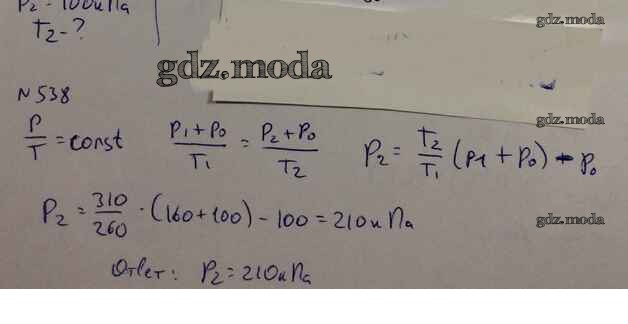 P₂ - 100 кПа
T₂ - ?
gdz.moda
gdz.moda
N 538
gdz.moda
P/T = const (P₁ + P₀)/T₁ = (P₂ + P₀)/T₂ P₂ = T₂/T₁ (P₁ + P₀) - P₀
P₂ = 310/260 · (160 + 100) - 100 = 210 кПа
gdz.moda
Ответ: P₂ = 210 кПа